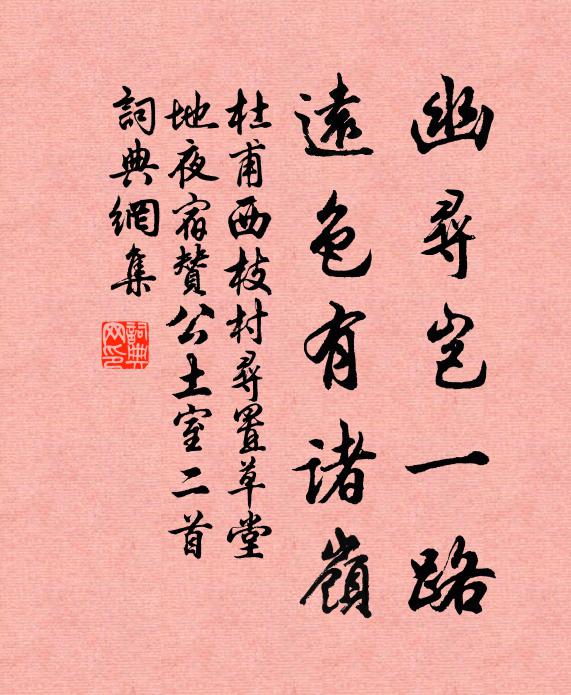 幽尋豈一路
遠色有諸嶺
杜甫西枝村尋置草堂
地夜宿贊公土室二首
詞典網集
詞典網印